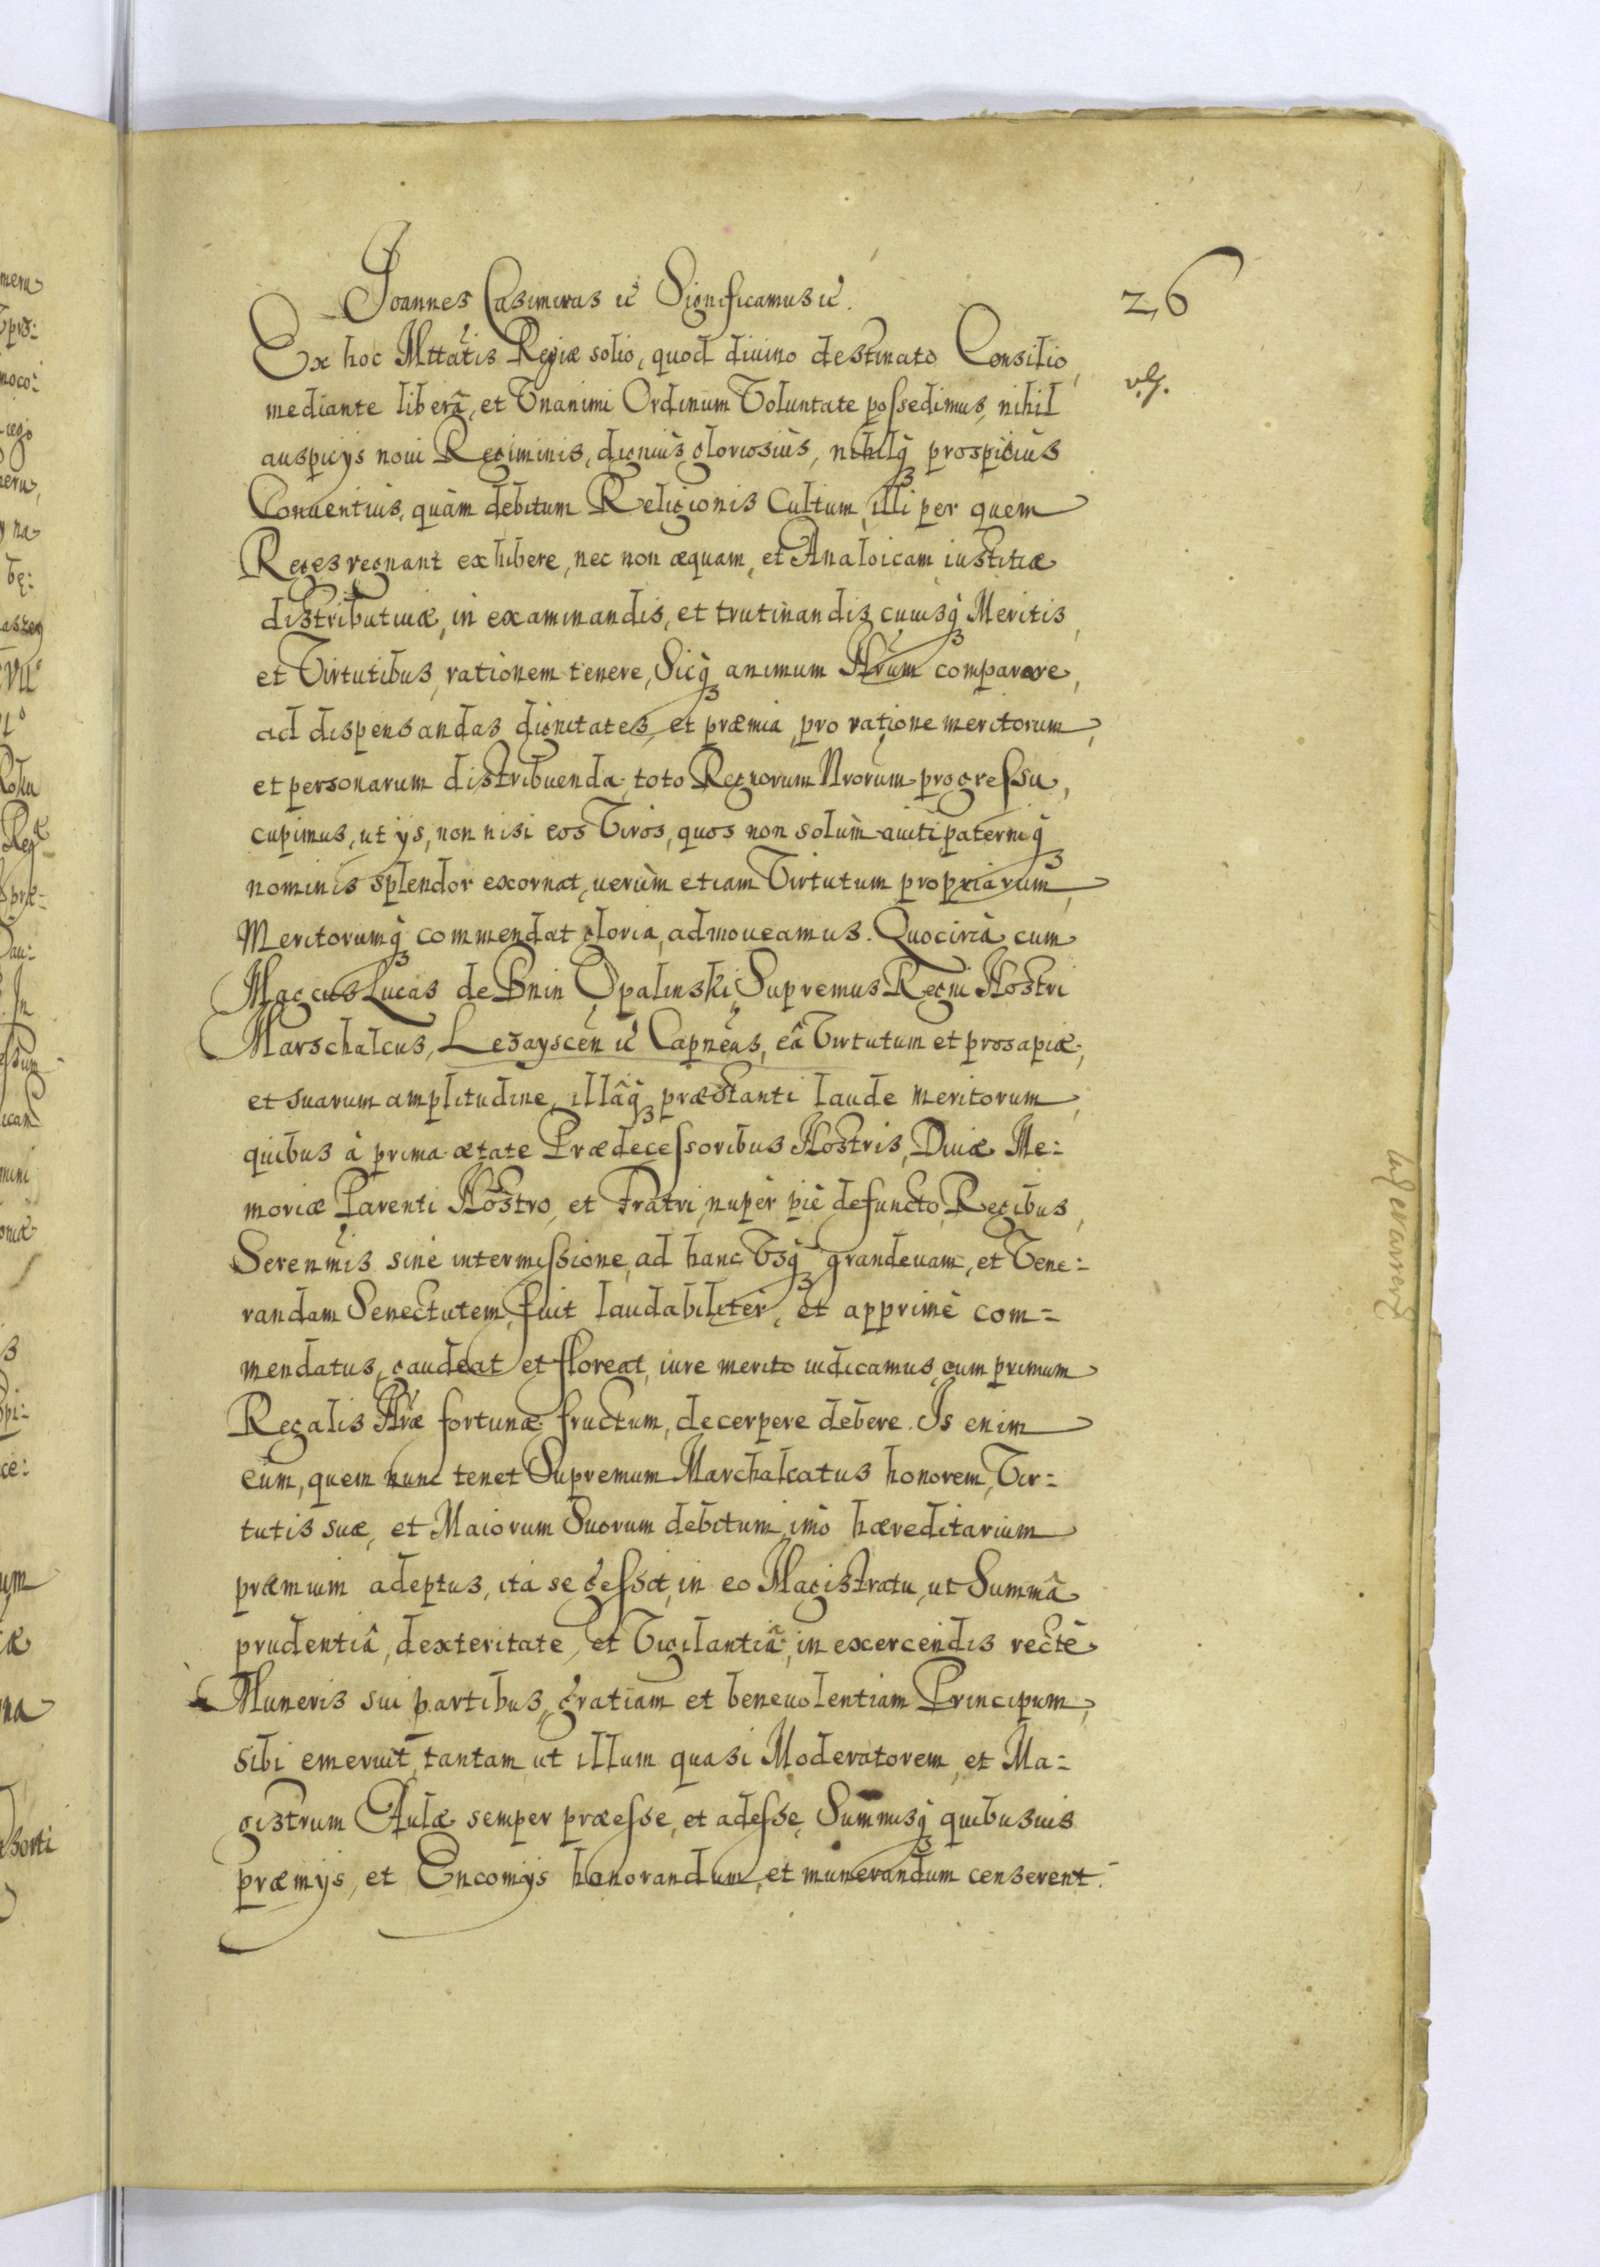 26
Joannes Casimirus etc Significamus etc.
Ex hoc Mttatis Regiæ solio, quod diuino destinato Consilio,
mediante liberâ, et Vnanimi Ordinum Voluntate possedimus, nihil
auspicijs noui Regiminis, digniùs gloriosiùs, nihilq₃ prospiciùs
Conuentiùs, quàm debitum Religionis Cultum, illi per quem
Reges regnant exhibere, nec non æquam, et Analoicam iustitiæ
distributiuæ, in examinandis, et trutinandis cuiusq₃ Meritis,
et Virtutibus, rationem tenere, Sicq₃ animum Nrum comparare,
ad dispensandas dignitates, et præmia, pro ratione meritorum,
et personarum distribuenda, toto Regnorum Nrorum progressu,
cupimus, ut ijs, non nisi eos Viros, quos non solùm auiti paterniq₃
nominis splendor exornat, uerùm etiam Virtutum propriarum,
Meritorumq₃ commendat gloria, admoueamus. Quocircà cum
Magcus Lucas de Bnin Opalinski, Supremus Regni Nostri
Marschalcus, Lezayscen etc Capneus, eâ Virtutum et prosapiæ,
et suarum amplitudine, illâq₃ præstanti laude meritorum,
quibus à prima ætate Prædecessoribus Nostris, Diuæ Me=
moriæ Parenti Nostro, et Fratri, nupèr piè defuncto, Regibus,
Serenmis sinè intermissione, ad hanc Vsq₃ grandeuam, et Vene=
randam Senectutem, fuit laudabilitèr, et apprimè com=
mendatus, gaudeat et floreat, iure merito iudicamus, eum primum
Regalis Nræ fortunæ fructum, decerpere debere. Is enim
eum, quem nunc tenet Supremum Marchalcatus honorem, Vir=
tutis suæ, et Maiorum Suorum debitum, imò hæreditarium
præmium adeptus, ita se gessit, in eo Magistratu, ut Summâ
prudentiâ, dexteritate, et Vigilantiâ, in excercendis rectè
Muneris sui partibus, gratiam et beneuolentiam Principum,
sibi emeruit, tantam, ut illum quasi Moderatorem, et Ma=
gistrum Aulæ semper præesse, et adesse, Summisq₃ quibusuis
præmijs, et Encomijs honorandum, et munerandum censerent.